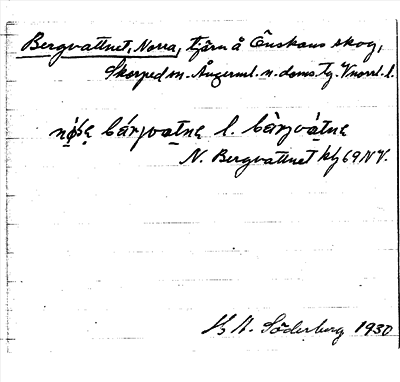 Bergvattnet, Norra, tjärn å Önskans skog,
Skorped sn. Ångerml. n. doms. tg. Vnorrl. l.
bárjvatnę l. bàrjvátnę
N. Bergvattnet kbl 69 NV.
Söderberg 1930